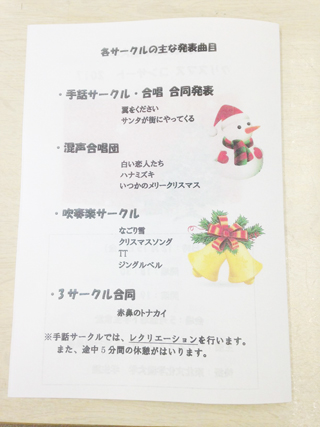 各サークルの主な発表曲目
・手話サークル・合唱 合同発表
翼をください
サンタが街にやってくる
・混声合唱団
白い恋人たち
ハナミズキ
いつかのメリークリスマス
・吹奏楽サークル
なごり雪
クリスマスソング
TT
ジングルベル
・３サークル合同
赤鼻のトナカイ
※手話サークルでは、レクリエーションを行います。
また、途中５分間の休憩がはいります。